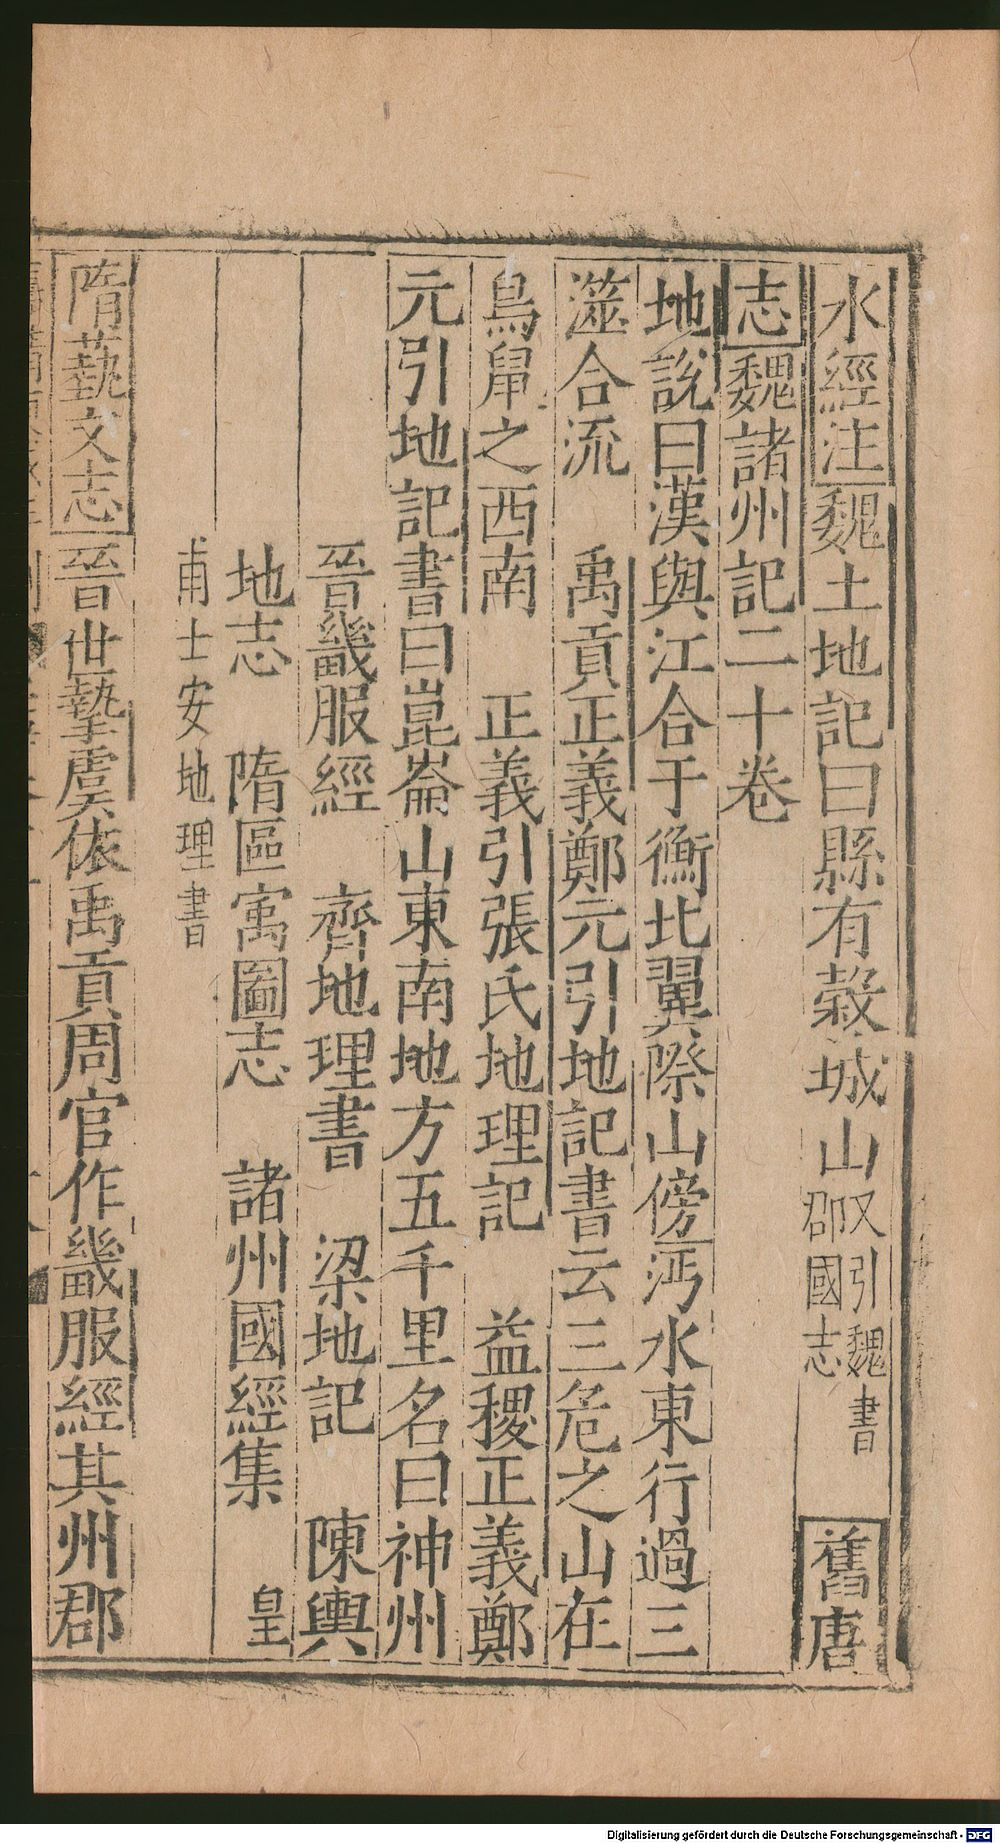 水經注魏土地記曰縣有穀城山又引魏書郡國志舊唐
志魏諸州記二十卷
地說曰漢與江合于衡北翼際山傍沔水東行過三
澨合流　禹貢正義鄭元引地記書云三危之山在
鳥鼠之西南　正義引張氏地理記　益稷正義鄭
元引地記書曰崑崙山東南地方五千里名曰神州
晉畿服經　齊地理書　梁地記　陳輿
地志　隋區寓圖志　諸州國經集　皇
甫士安地理書
隋藝文志晉世摯虞依禹貢周官作畿服經其州郡
Digitalisierung gefördert durch die Deutsche Forschungsgemeinschaft - DFG